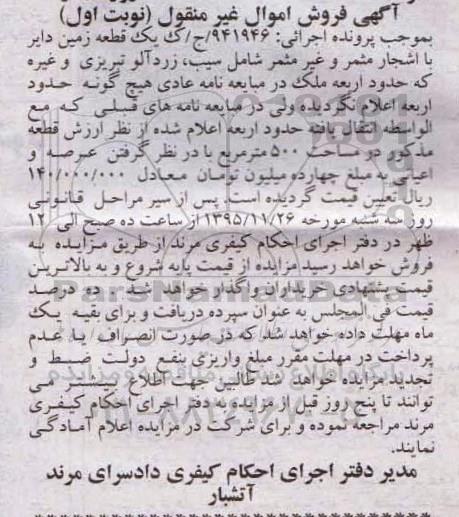 آگهی فروش اموال غیر منقول (نوبت اول)
بموجب پرونده اجرائی: ۹۴۱۹۴۶/ج/ک یک قطعه زمین دایر
با اشجار مثمر و غیر مثمر شامل سیب، زردآلو تبریزی و غیره
که حدود اربعه ملک در مبایعه نامه عادی هیچ گونه حدود
اربعه اعلام نگردیده ولی در مبایعه نامه های قبلی که مع
الواسطه انتقال یافته حدود اربعه اعلام شده از نظر ارزش قطعه
مذکور در مساحت ۵۰۰ مترمربع با در نظر گرفتن عرصه و
اعیانی به مبلغ چهارده میلیون تومان معادل ۱۴۰/۰۰۰/۰۰۰
ریال تعیین قیمت گردیده است. پس از سیر مراحل قانونی
روز سه شنبه مورخه ۱۳۹۵/۱۱/۲۶ از ساعت ده صبح الی ۱۲
ظهر در دفتر اجرای احکام کیفری مرند از طریق مزایده به
فروش خواهد رسید مزایده از قیمت پایه شروع و به بالاترین
قیمت پیشنهادی خریداران واگذار خواهد شد . ده درصد
قیمت فی المجلس به عنوان سپرده دریافت و برای بقیه یک
ماه مهلت داده خواهد شد که در صورت انصراف/ یا عدم
پرداخت در مهلت مقرر مبلغ واریزی بنفع دولت ضبط و
تجدید مزایده خواهد شد طالبین جهت اطلاع بیشتر می
توانند تا پنج روز قبل از مزایده به دفتر اجرای احکام کیفری
مرند مراجعه نموده و برای شرکت در مزایده اعلام آمادگی
نمایند.
مدیر دفتر اجرای احکام کیفری دادسرای مرند
آتشبار
ParsNamadData